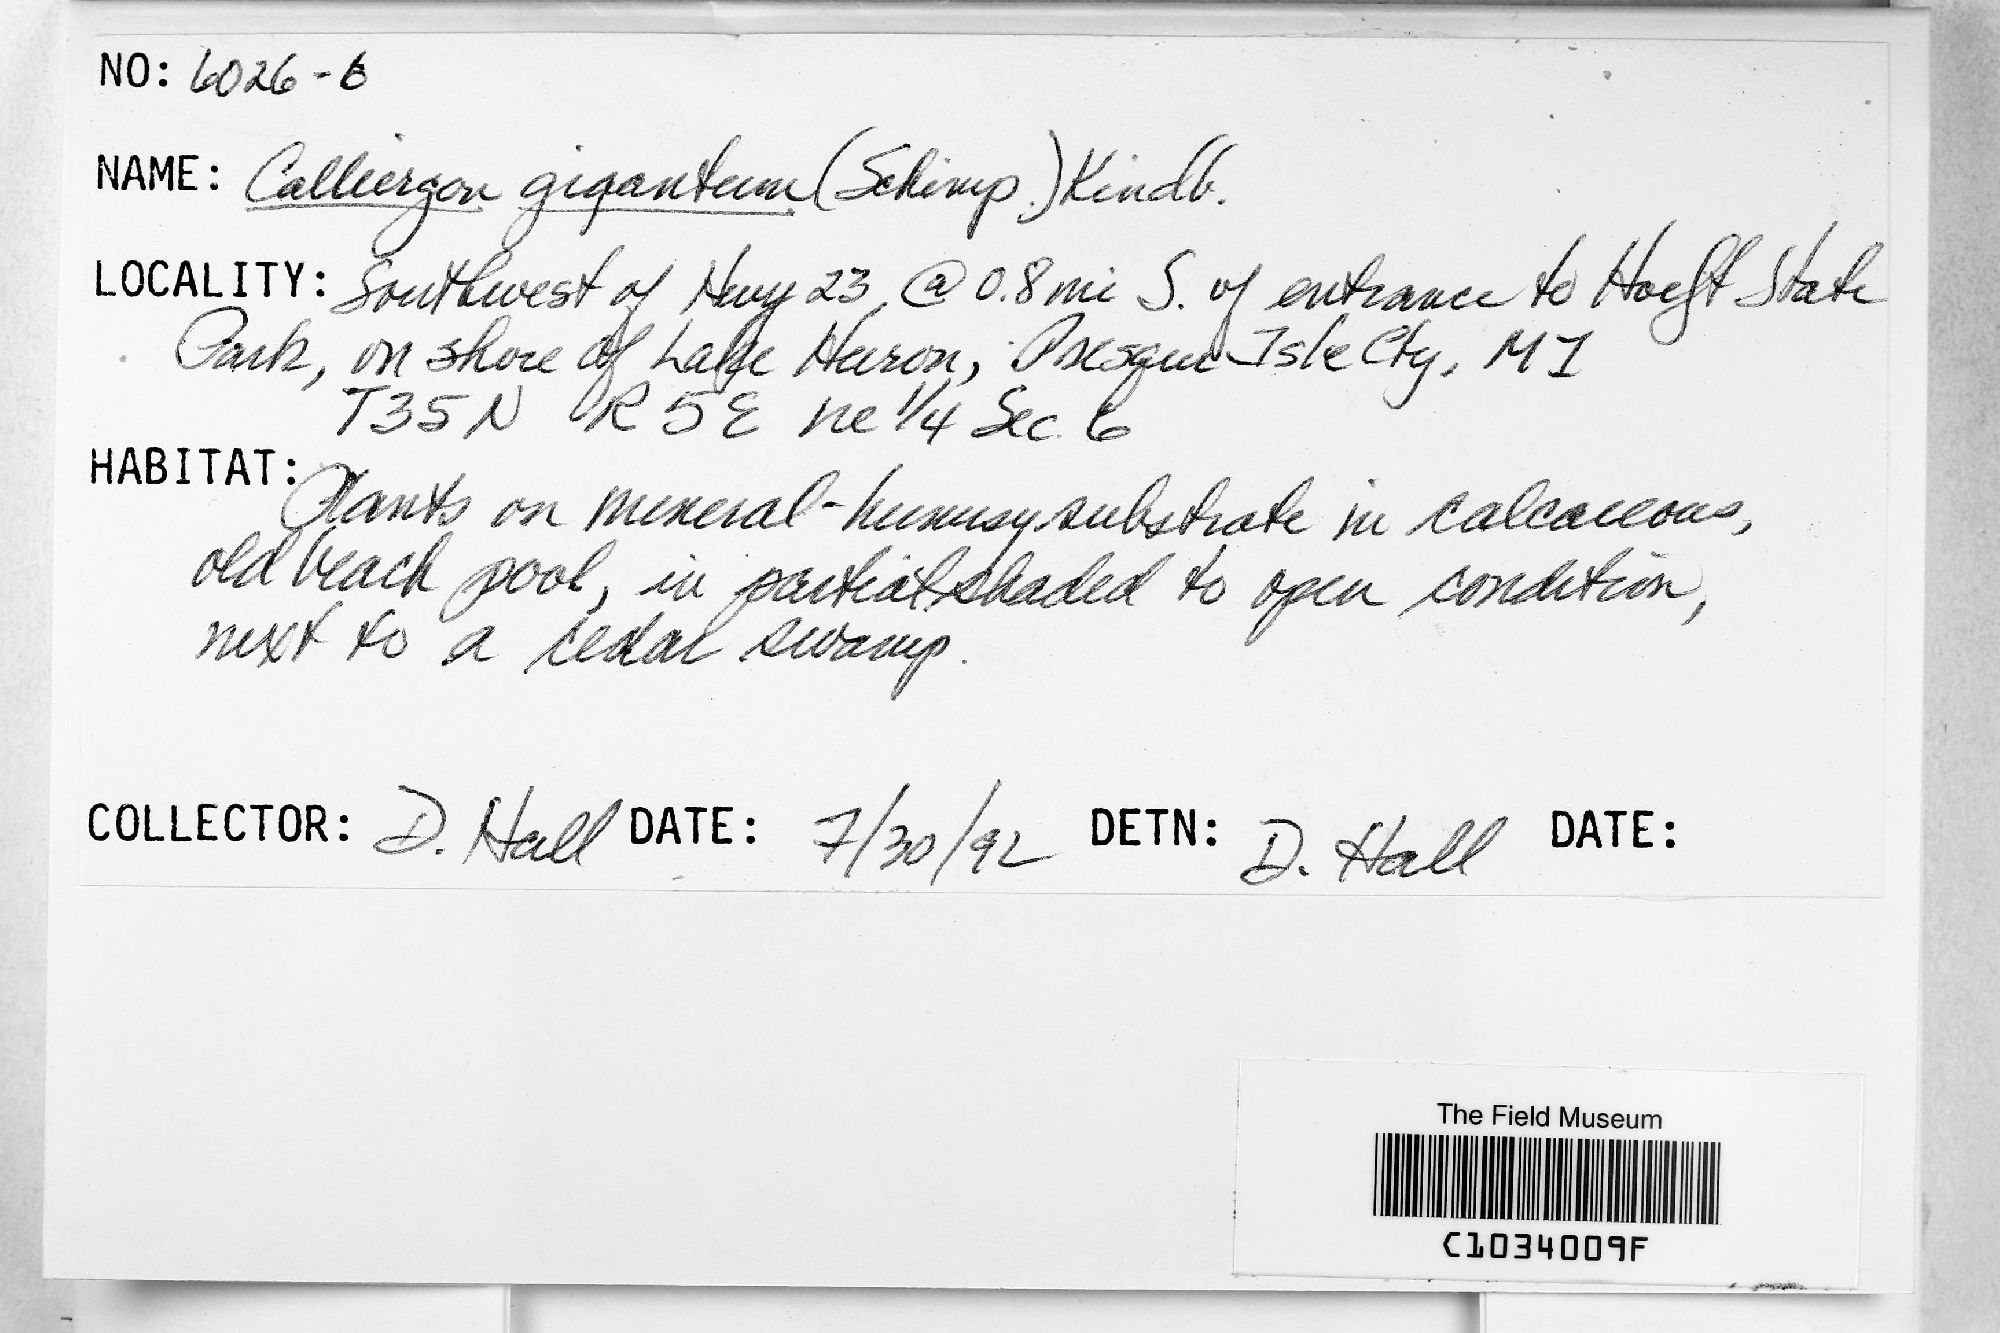 NO: 6026-6
NAME: Calliergon giganteum (Schimp.) Kindb.
LOCALITY: Southwest of Hwy 23, @ 0.8 mi S. of entrance to Hoeft State
Park, on shore of Lake Huron, Presque Isle Cty, MI
T35N R5E ne 1/4 Sec. 6
HABITAT:
Plants on mineral-humusy substrate in calcareous,
old beach pool, in partial shaded to open condition,
next to a cedar swamp.
COLLECTOR: D. Hall DATE: 7/30/92 DETN: D. Hall DATE:
The Field Museum
C1034009F